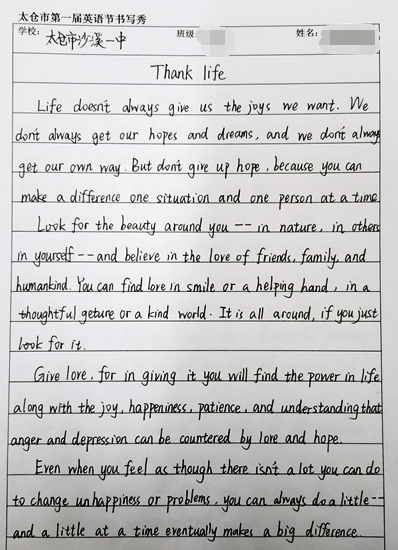 太仓市第一届英语节书写秀
学校: 太仓市沙溪一中 班级 姓名:
Thank life
Life doesn't always give us the joys we want. We
don't always get our hopes and dreams, and we don't always
get our own way. But don't give up hope, because you can
make a difference one situation and one person at a time.
Look for the beauty around you -- in nature, in others
in yourself -- and believe in the love of friends, family, and
humankind. You can find love in smile or a helping hand, in a
thoughtful geture or a kind world. It is all around, if you just
look for it.
Give love, for in giving it you will find the power in life
along with the joy, happeniness, patience, and understanding that
anger and depression can be countered by love and hope.
Even when you feel as though there isn't a lot you can do
to change unhappiness or problems, you can always do a little --
and a little at a time eventually makes a big difference.